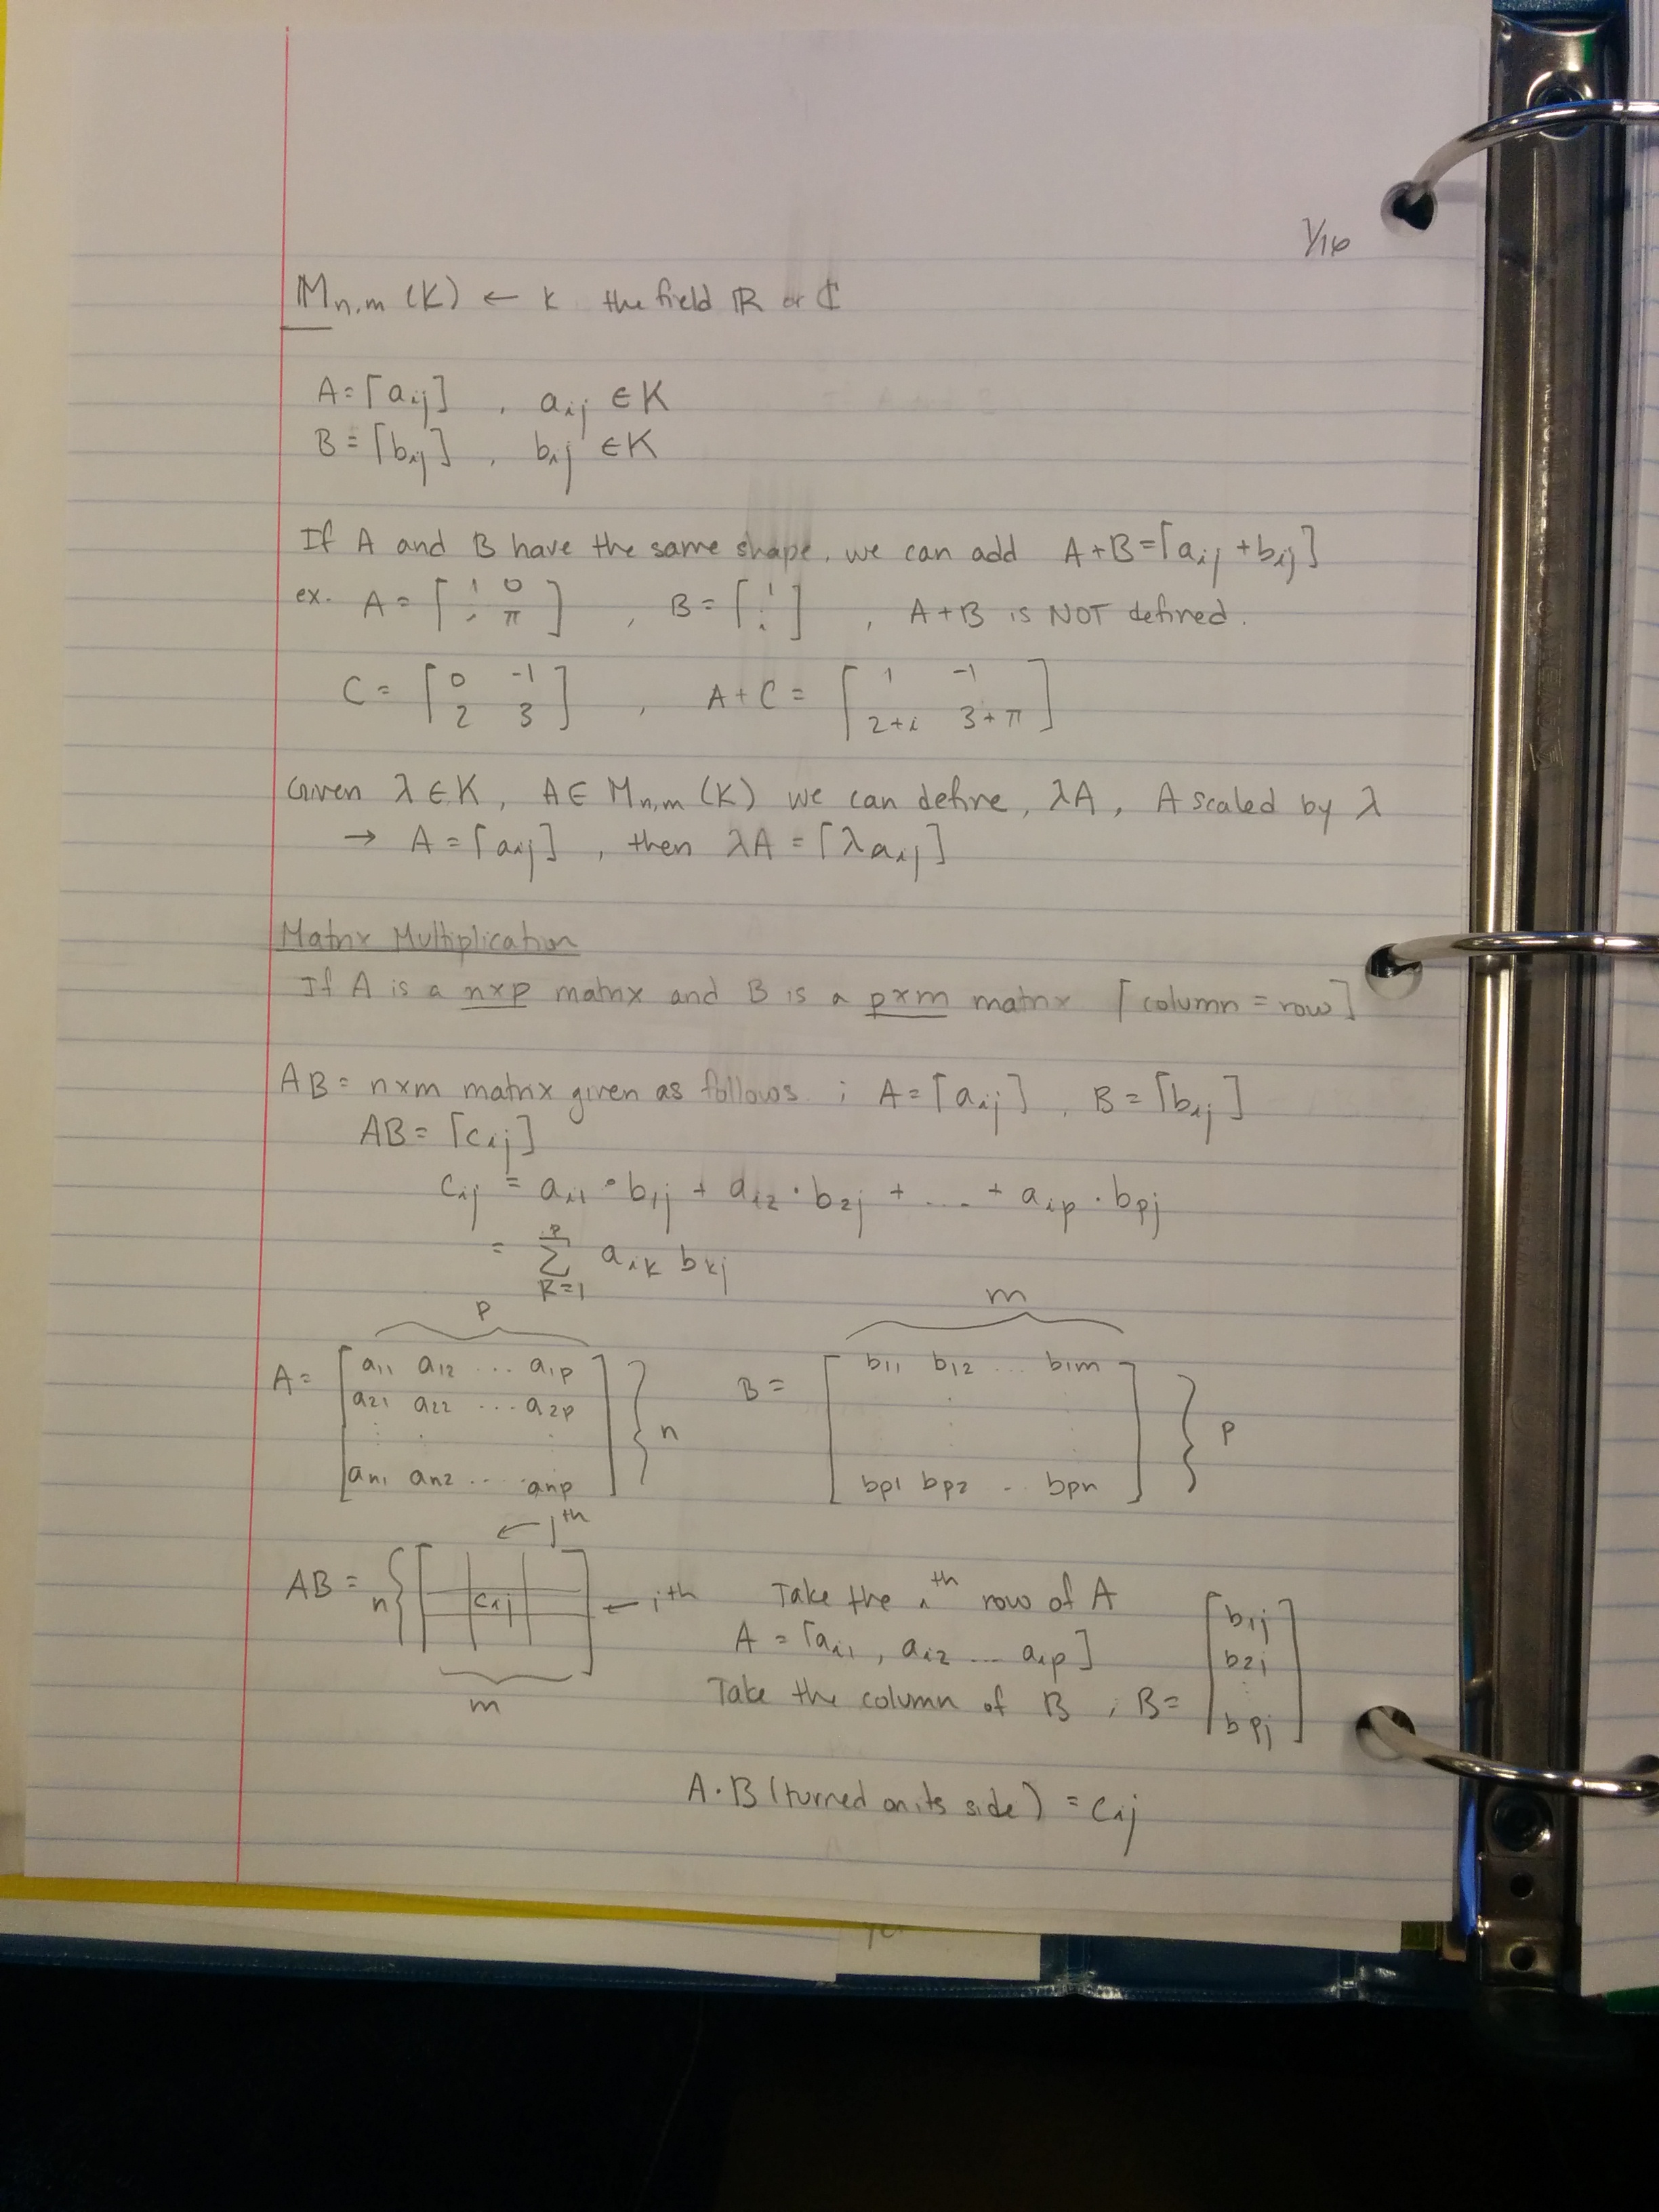 1/16
M n,m (K) ← K the field ℝ or ℂ
A = [aij] , aij ∈ K
B = [bij] , bij ∈ K
If A and B have the same shape, we can add A+B = [aij + bij]
ex. A = [1 0; i π] , B = [1; i] , A+B is NOT defined.
C = [0 -1; 2 3] , A+C = [1 -1; 2+i 3+π]
Given λ ∈ K, A ∈ Mn,m (K) we can define, λA, A scaled by λ
→ A = [aij] , then λA = [λaij]
Matrix Multiplication
If A is a nxp matrix and B is a pxm matrix [column = row]
AB = nxm matrix given as follows ; A = [aij] , B = [bij]
AB = [cij]
cij = ai1 · b1j + ai2 · b2j + ... + aip · bpj
= Σ k=1 p aik bkj
p m
A = [a11 a12 ... a1p B = [b11 b12 ... b1m
a21 a22 ... a2p
n p
an1 an2 ... anp] bp1 bp2 .. bpn]
← jth
AB = n{[cij] ← ith Take the ith row of A
A = [ai1, ai2 ... aip]
m Take the column of B , B = [b1j b2j ⋮ bpj]
A·B (turned on its side) = cij